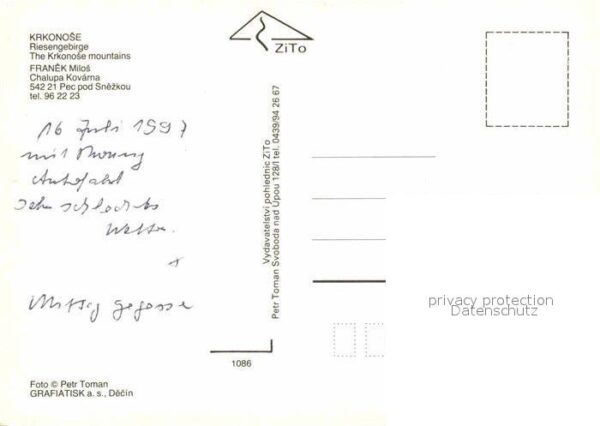 KRKONOŠE
Riesengebirge
The Krkonoše mountains
FRANĚK Miloš
Chalupa Kovárna
542 21 Pec pod Sněžkou
tel. 96 22 23
ZiTo
16 Juli 1997
mit
Autofahrt
Sehr schlechtes
Wetter.
+
Mittag gegessen
Vydavatelství pohlednic ZiTo
Petr Toman Svoboda nad Úpou 128/I tel. 0439/94 26 67
privacy protection
Datenschutz
1086
Foto © Petr Toman
GRAFIATISK a. s., Děčín